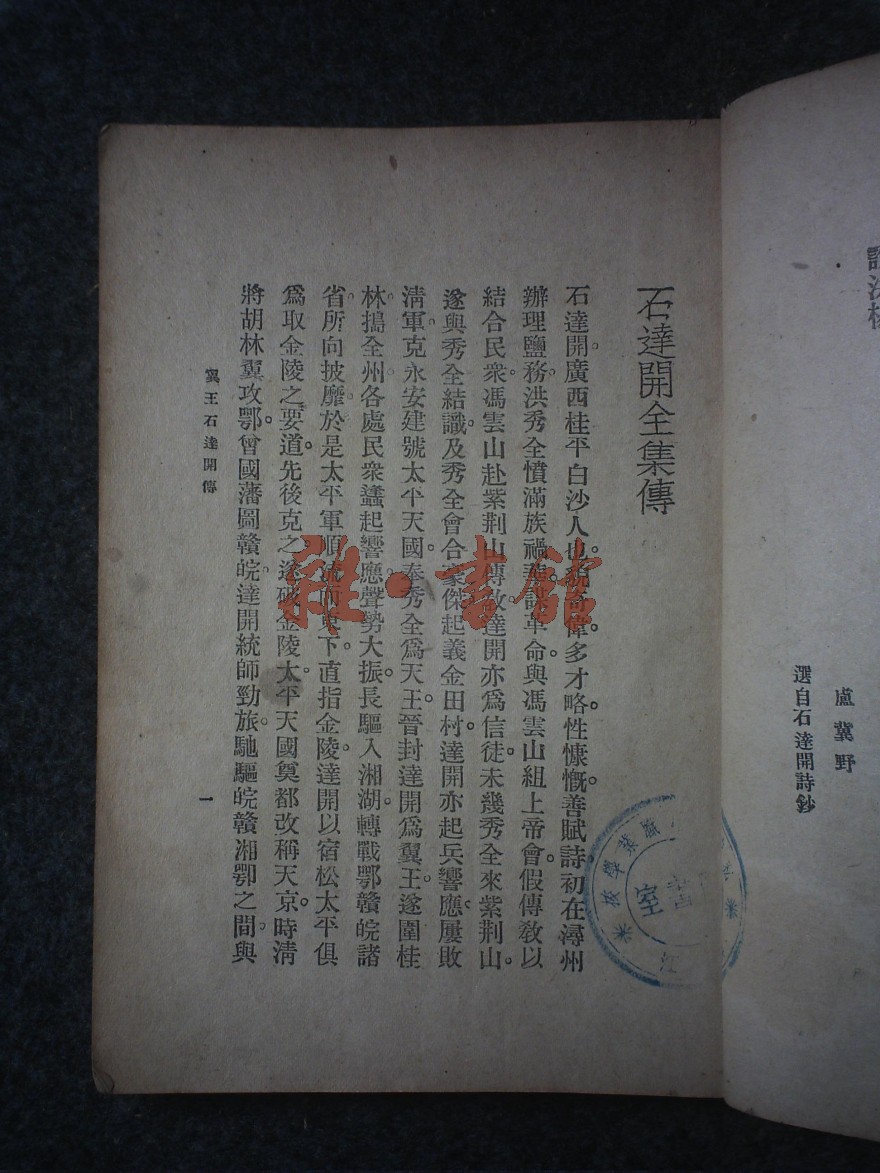 石達開全集傳
石達開。廣西桂平白沙人也。貌奇偉。多才略。性慷慨。善賦詩。初在潯州
辦理鹽務。洪秀全憤滿族禍華。謀革命。與馮雲山組上帝會。假傳敎以
結合民衆。馮雲山赴紫荆山傳敎。達開亦爲信徒。未幾秀全來紫荆山。
遂與秀全結識。及秀全會合豪傑。起義金田村。達開亦起兵響應。屢敗
淸軍。克永安。建號太平天國。奉秀全爲天王。晉封達開爲翼王。遂圍桂
林。搗全州。各處民衆。蠭起響應。聲勢大振。長驅入湘湖。轉戰鄂贛皖諸
省。所向披靡。於是太平軍順流而東下。直指金陵。達開以宿松太平俱
爲取金陵之要道。先後克之。遂破金陵。太平天國奠都改稱天京。時淸
將胡林翼攻鄂。曾國藩圖贛皖。達開統師勁旅。馳驅皖贛湘鄂之間。與
翼王石達開傳
一
盧冀野
選自石達開詩鈔
雜·書館